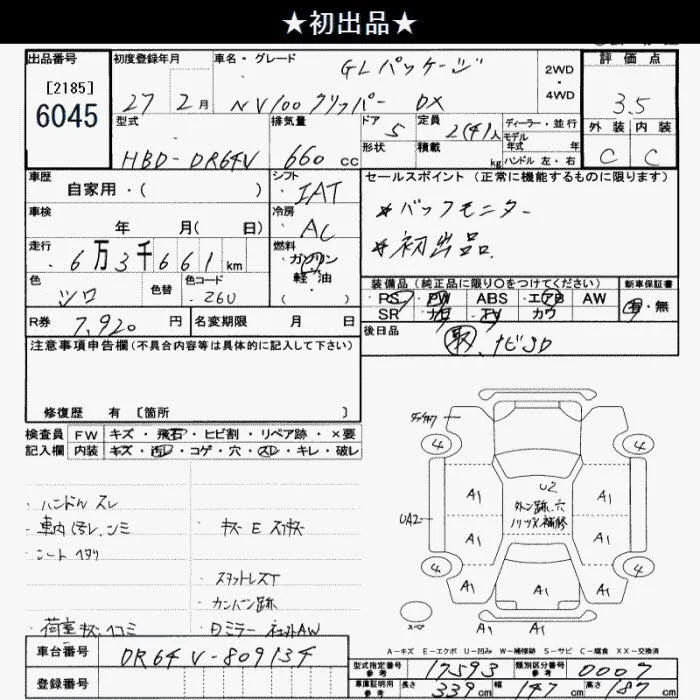 ★初出品★
出品番号
[2185]
6045
初度登録年月
27 2月
車名・グレード
GLパッケージ
NV100クリッパー DX
2WD
・
4WD
評価点
3.5
外装 内装
C C
型式
HBD-DR64V
排気量
660 cc
ドア
5
形状
定員
2(4)人
積載
kg
ディーラー・並行
モデル
年式 年
ハンドル 左・右
車歴
自家用・( )
シフト
IAT
車検
年 月( 日)
冷房
AC
走行
6万3千661km
燃料
ガソリン
軽・油
( )
色
シロ
色替
色コード
26U
R券
7,920 円
名変期限 月 日
セールスポイント(正常に機能するものに限ります)
★バックモニター
★初出品.
装備品(純正品に限り○をつけてください)
PS PW ABS エアB AW
SR ナビ TV カワ
新車保証書
有・無
後日品
取、ナビSD
注意事項申告欄(不具合内容等は具体的に記入して下さい)
修復歴 有 [箇所 ]
検査員 FW キズ・飛石・ヒビ割・リペア跡・×要
記入欄 内装 キズ・汚れ・コゲ・穴・スレ・キレ・破レ
・ハンドルスレ
・車内汚レ.シミ
・シートヘタリ
・キズEスリキズ
・スタットレスT
・カンバン跡
・荷室キズヘコミ
UA2
4 4
A1 A1
U2
A1 A1
4 4
A1 A1 A1
A1 A1
スペア
A-キズ E-エクボ U-凹み W-補修跡 S-サビ C-腐食 XX-交換済
車台番号 DR64V-809134
登録番号
型式指定番号
参考
17593
類別区分番号
参考
0007
車庫証明用
参考
長さ 339cm 幅 147cm 高さ 187cm